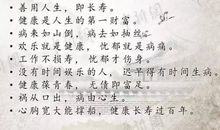 · 善用人生，即长寿。
· 健康是人生的第一财富。
· 病来如山倒，病去如抽丝。
· 欢乐就是健康，忧郁就是病痛。
· 工作不损寿，忧郁才伤身。
· 没有时间娱乐的人，迟早得有时间生病。
· 健康葆青春，无债即富足。
· 祸从口出，病由心生。
· 心胸宽大能撑船，健康长寿过百年。